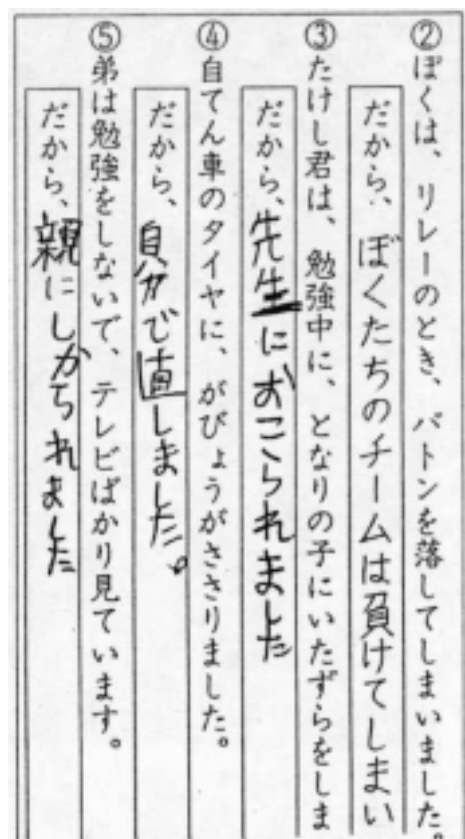 ②ぼくは、リレーのとき、バトンを落してしまいました。
だから、ぼくたちのチームは負けてしまい
③たけし君は、勉強中に、となりの子にいたずらをしま
だから、先生におこられました
④自てん車のタイヤに、がびょうがささりました。
だから、自分で直しました。
⑤弟は勉強をしないで、テレビばかり見ています。
だから、親にしかられました